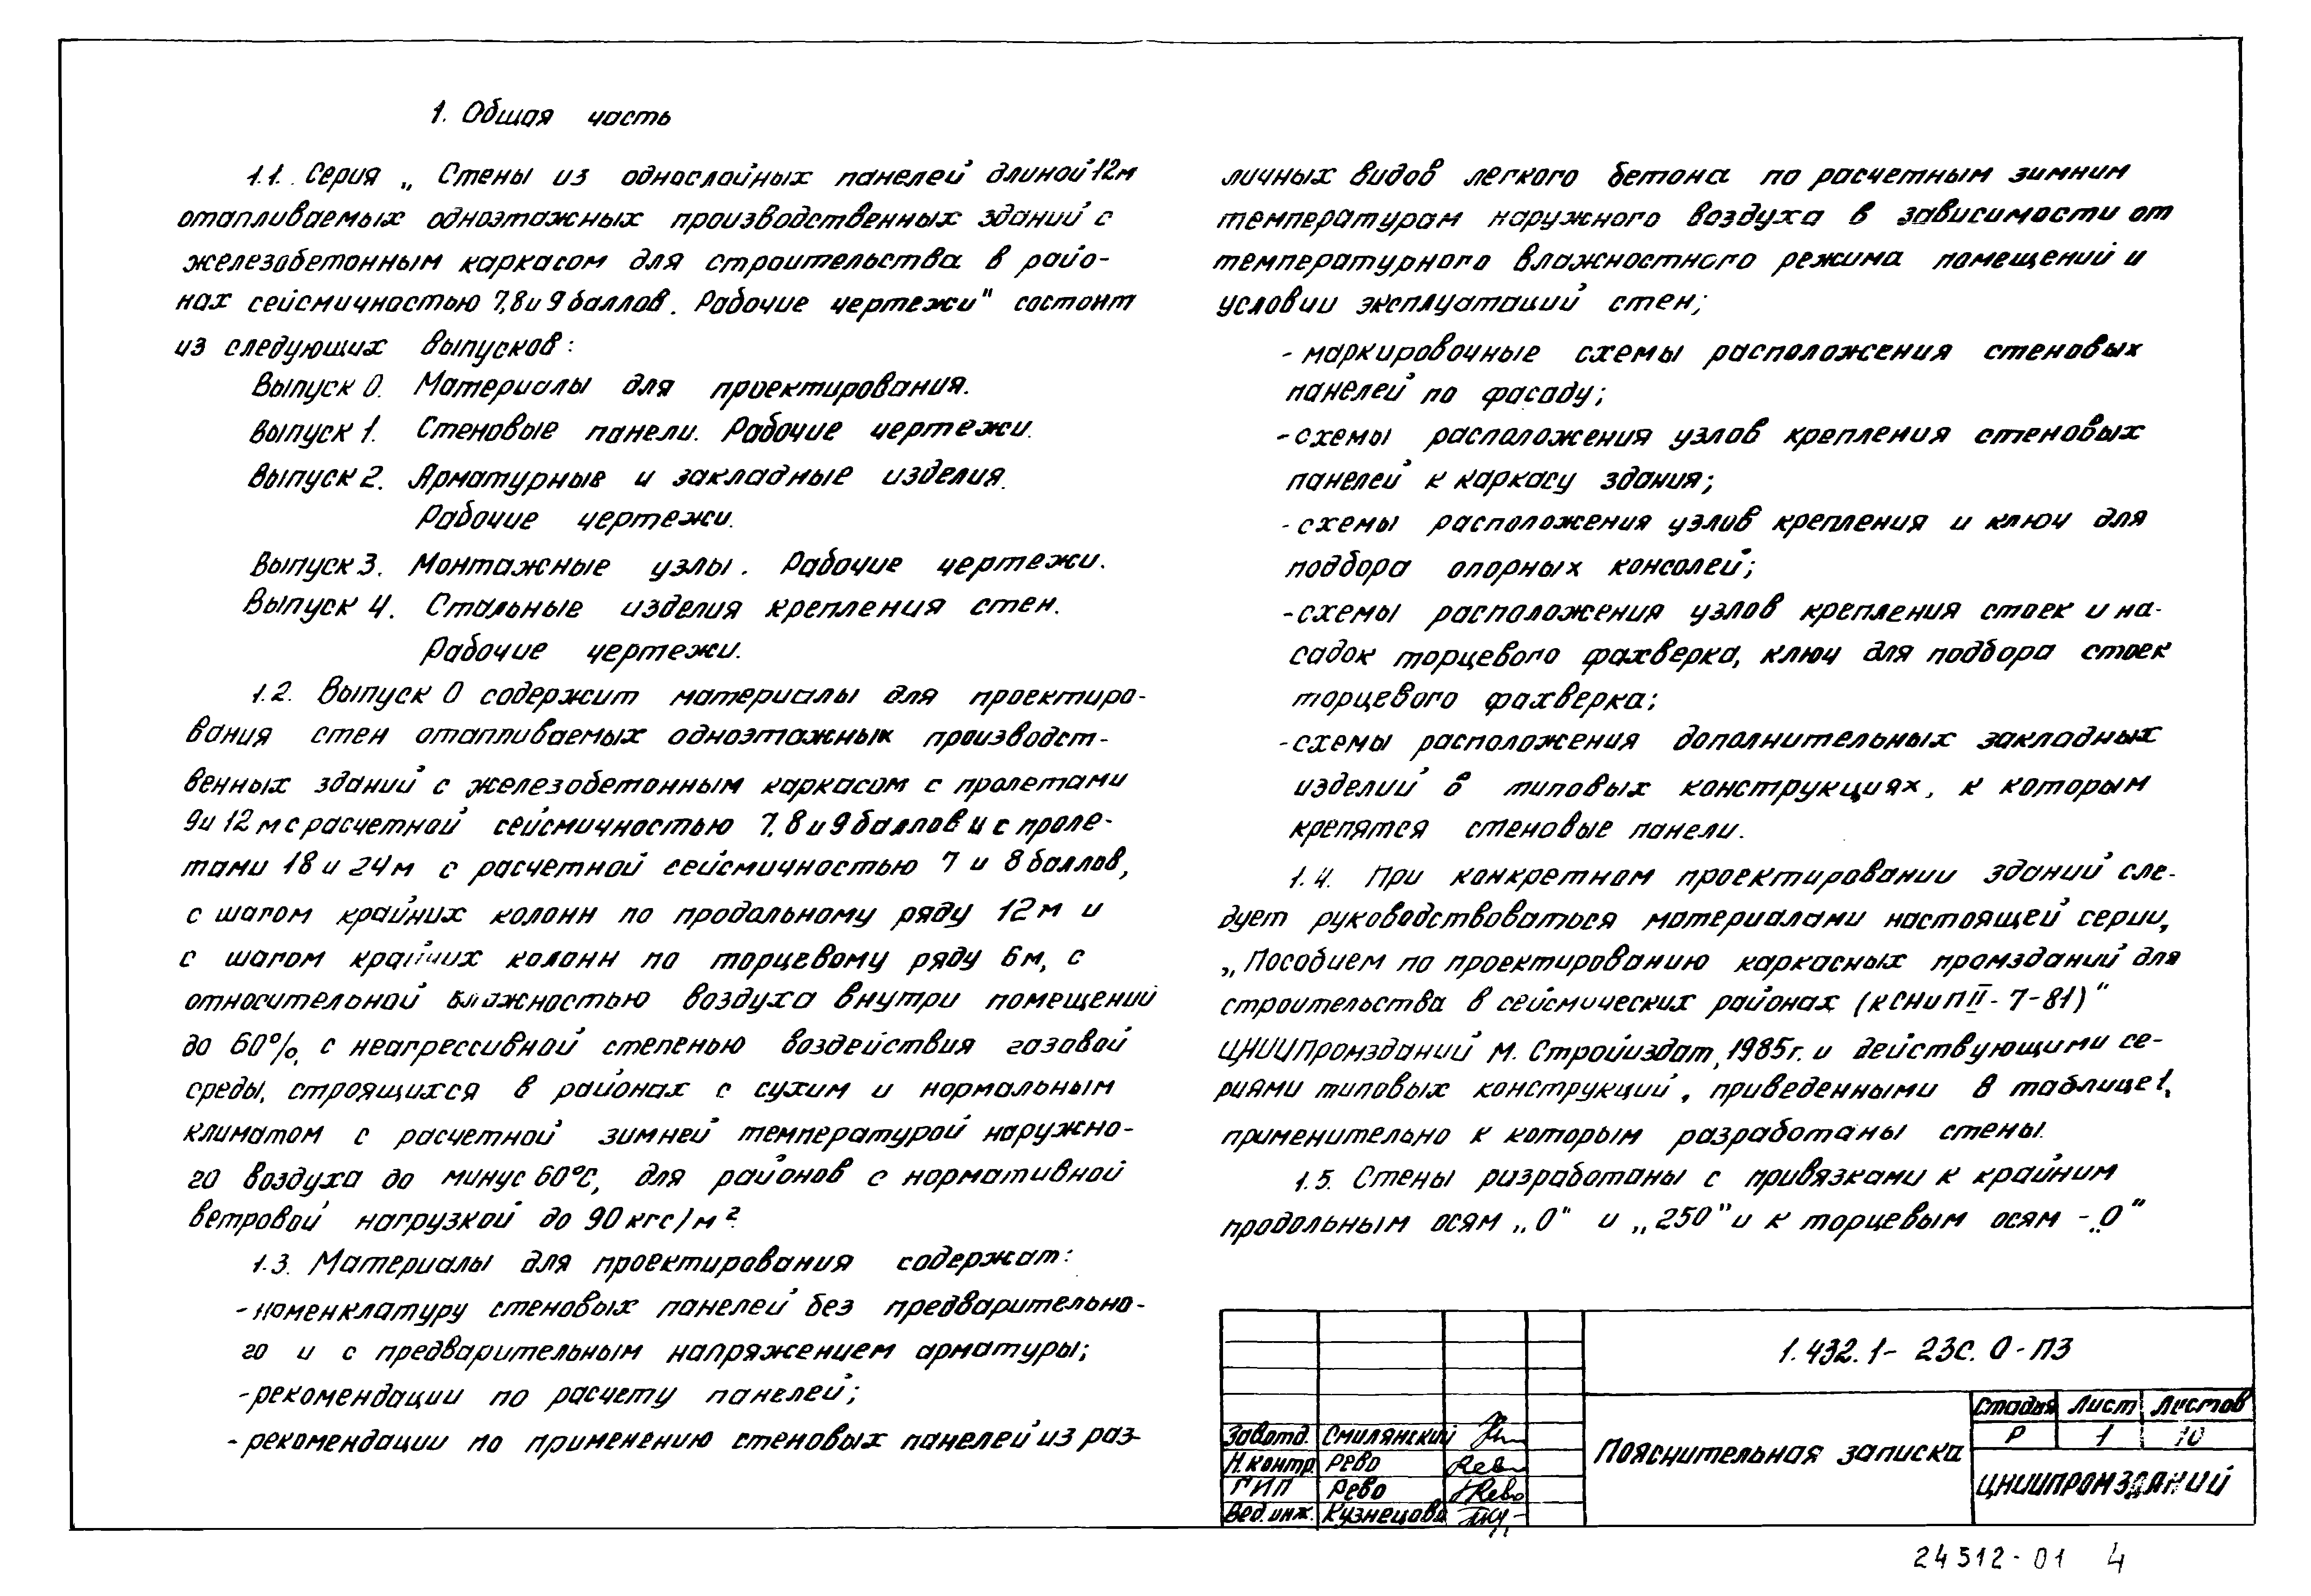 1. Общая часть
1.1. Серия „ Стены из однослойных панелей длиной 12м
отапливаемых одноэтажных производственных зданий с
железобетонным каркасом для строительства в райо-
нах сейсмичностью 7,8 и 9 баллов. Рабочие чертежи" состоит
из следующих выпусков:
Выпуск 0. Материалы для проектирования.
Выпуск 1. Стеновые панели. Рабочие чертежи.
Выпуск 2. Арматурные и закладные изделия.
Рабочие чертежи.
Выпуск 3. Монтажные узлы. Рабочие чертежи.
Выпуск 4. Стальные изделия крепления стен.
Рабочие чертежи.
1.2. Выпуск 0 содержит материалы для проектиро-
вания стен отапливаемых одноэтажных производст-
венных зданий с железобетонным каркасом с пролетами
9 и 12 м с расчетной сейсмичностью 7, 8 и 9 баллов и с проле-
тами 18 и 24 м с расчетной сейсмичностью 7 и 8 баллов,
с шагом крайних колонн по продольному ряду 12 м и
с шагом крайних колонн по торцевому ряду 6м, с
относительной влажностью воздуха внутри помещений
до 60%, с неагрессивной степенью воздействия газовой
среды, строящихся в районах с сухим и нормальным
климатом с расчетной зимней температурой наружно-
го воздуха до минус 60°С, для районов с нормативной
ветровой нагрузкой до 90 кгс/м².
1.3. Материалы для проектирования содержат:
- номенклатуру стеновых панелей без предварительно-
го и с предварительным напряжением арматуры;
- рекомендации по расчету панелей;
- рекомендации по применению стеновых панелей из раз-
личных видов легкого бетона по расчетным зимним
температурам наружного воздуха в зависимости от
температурного влажностного режима помещений и
условии эксплуатаций стен;
- маркировочные схемы расположения стеновых
панелей по фасаду;
- схемы расположения узлов крепления стеновых
панелей к каркасу здания;
- схемы расположения узлов крепления и ключ для
подбора опорных консолей;
- схемы расположения узлов крепления стоек и на-
садок торцевого фахверка, ключ для подбора стоек
торцевого фахверка;
- схемы расположения дополнительных закладных
изделий в типовых конструкциях, к которым
крепятся стеновые панели.
1.4. При конкретном проектировании зданий сле-
дует руководствоваться материалами настоящей серии,
„Пособием по проектированию каркасных промзданий для
строительства в сейсмических районах (к СНиП II - 7-81)"
ЦНИИПромзданий М. Стройиздат, 1985г. и действующими се-
риями типовых конструкций, приведенными в таблице 1,
применительно к которым разработаны стены.
1.5. Стены разработаны с привязками к крайним
продольным осям „0" и „250" и к торцевым осям - „0"
1.432.1- 23с. 0 - ПЗ
Стадия Лист Листов
Р 1 10
Пояснительная записка
ЦНИИПРОМЗДАНИЙ
Зав.отд. Смилянский
Н.контр. Рево
ГИП Рево
Вед. инж. Кузнецова
24512-01 4